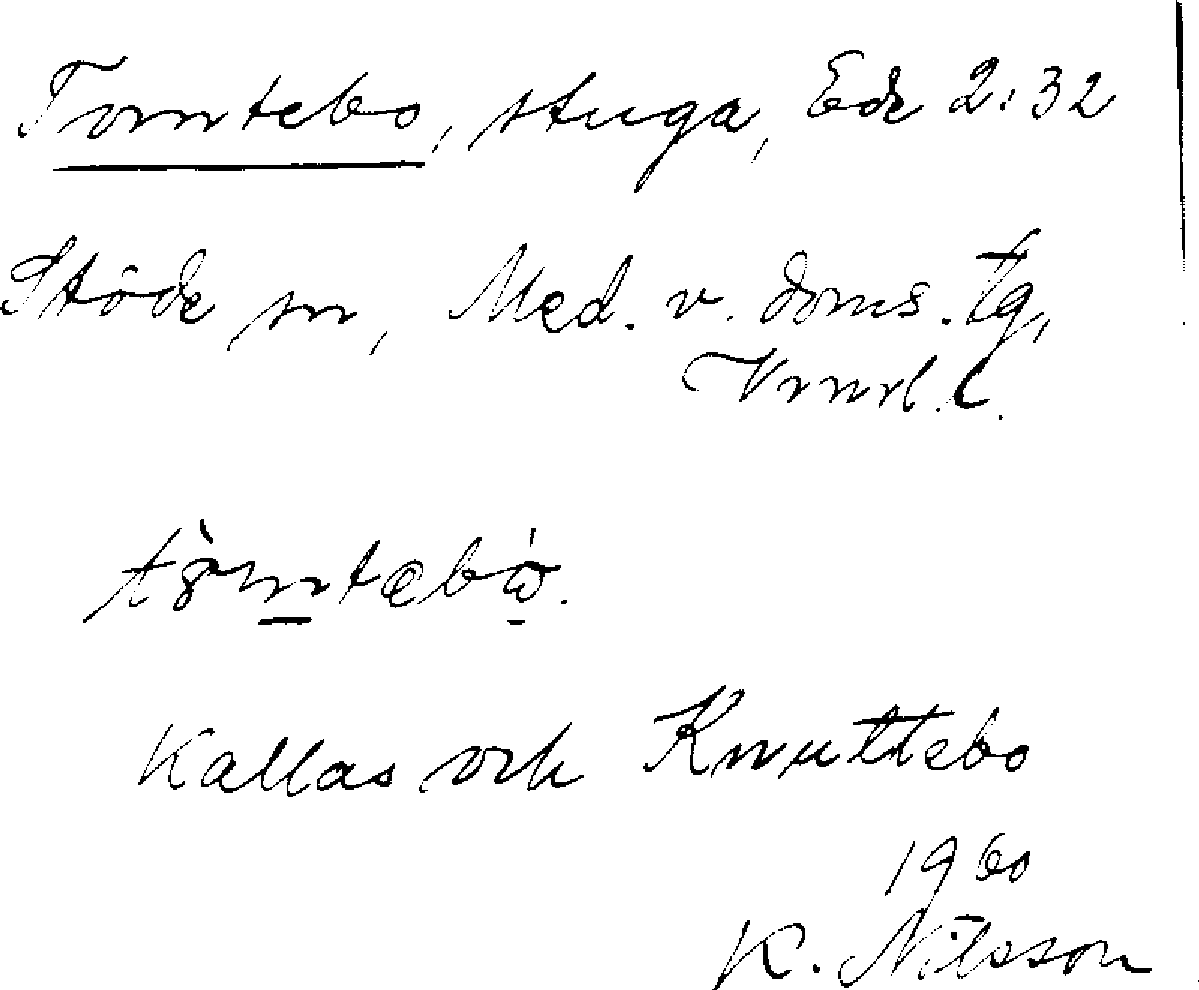 Tomtebo, stuga, Ede 2:32
Stöde sn, Med. v. doms. tg,
Vnrl. l.
Kallas och Knuttebo
1960
K. Nilsson